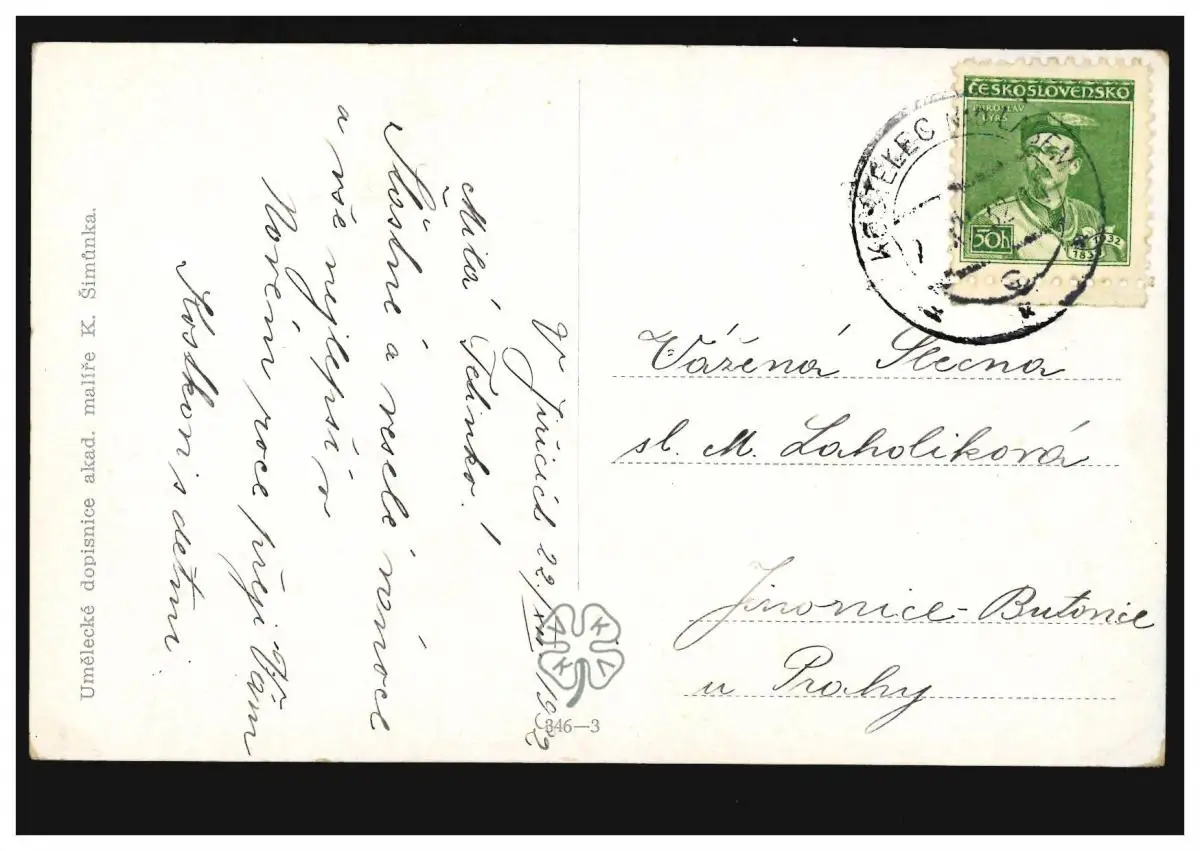 Umělecké dopisnice akad. malíře K. Šimůnka.
V Jiřicích 22./XII 1932
Milá Fálinko!
Šťastné a veselé vánoce
a vše nejlepší v
Novém roce přejí Vám
Kostkovi s dětmi.
346—3
ČESKOSLOVENSKO
MIROSLAV
TYRŠ
50h
1832
1932
KOSTELEC NAD LABEM
Vážená Slečna
sl. M. Laholiková
Jinonice-Butovice
u Prahy